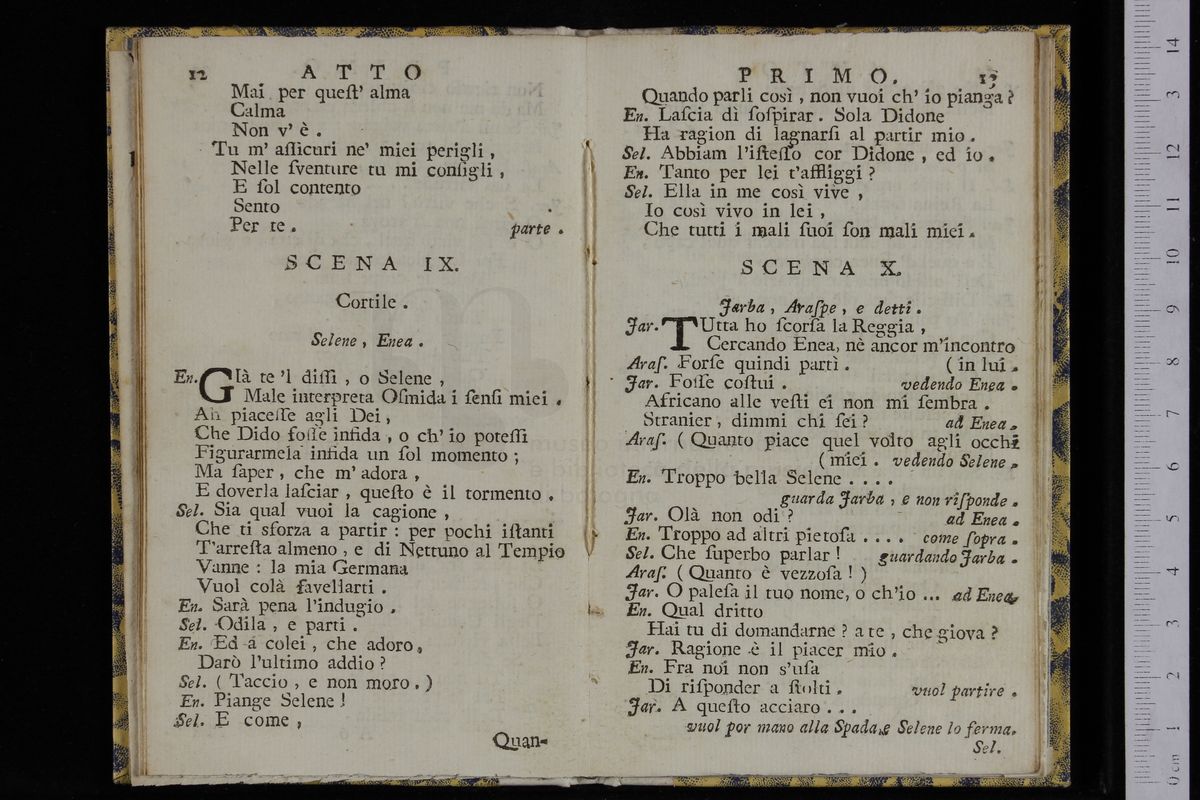 12 ATTO
Mai per queſt' alma
Calma
Non v' è .
Tu m' aſſicuri ne' miei perigli ,
Nelle ſventure tu mi conſigli ,
E ſol contento
Sento
Per te . parte .
SCENA IX.
Cortile .
Selene , Enea .
En. GIà te 'l diſſi , o Selene ,
Male interpreta Oſmida i ſenſi miei .
Ah piaceſſe agli Dei ,
Che Dido foſſe infida , o ch' io poteſſi
Figurarmela infida un ſol momento ;
Ma ſaper , che m' adora ,
E doverla laſciar , queſto è il tormento .
Sel. Sia qual vuoi la cagione ,
Che ti sforza a partir : per pochi iſtanti
T'arreſta almeno , e di Nettuno al Tempio
Vanne : la mia Germana
Vuol colà favellarti .
En. Sarà pena l'indugio .
Sel. Odila , e parti .
En. Ed a colei , che adoro ,
Darò l'ultimo addio ?
Sel. ( Taccio , e non moro . )
En. Piange Selene !
Sel. E come ,
Quan-
PRIMO. 13
Quando parli così , non vuoi ch' io pianga ?
En. Laſcia dì ſoſpirar . Sola Didone
Ha ragion di lagnarſi al partir mio .
Sel. Abbiam l'iſteſſo cor Didone , ed io .
En. Tanto per lei t'affliggi ?
Sel. Ella in me così vive ,
Io così vivo in lei ,
Che tutti i mali ſuoi ſon mali miei .
SCENA X.
Jarba , Araſpe , e detti .
Jar. TUtta ho ſcorſa la Reggia ,
Cercando Enea, nè ancor m'incontro
Araſ. Forſe quindi partì . ( in lui .
Jar. Foſſe coſtui . vedendo Enea .
Africano alle veſti ei non mi ſembra .
Stranier , dimmi chi ſei ? ad Enea .
Araſ. ( Quanto piace quel volto agli occhi
( miei . vedendo Selene .
En. Troppo bella Selene . . . .
guarda Jarba , e non riſponde .
Jar. Olà non odi ? ad Enea .
En. Troppo ad altri pietoſa . . . . come ſopra .
Sel. Che ſuperbo parlar ! guardando Jarba .
Araſ. ( Quanto è vezzoſa ! )
Jar. O paleſa il tuo nome, o ch'io ... ad Enea.
En. Qual dritto
Hai tu di domandarne ? a te , che giova ?
Jar. Ragione è il piacer mio .
En. Fra noi non s'uſa
Di riſponder a ſtolti . vuol partire .
Jar. A queſto acciaro . . .
vuol por mano alla Spada, e Selene lo ferma.
Sel.